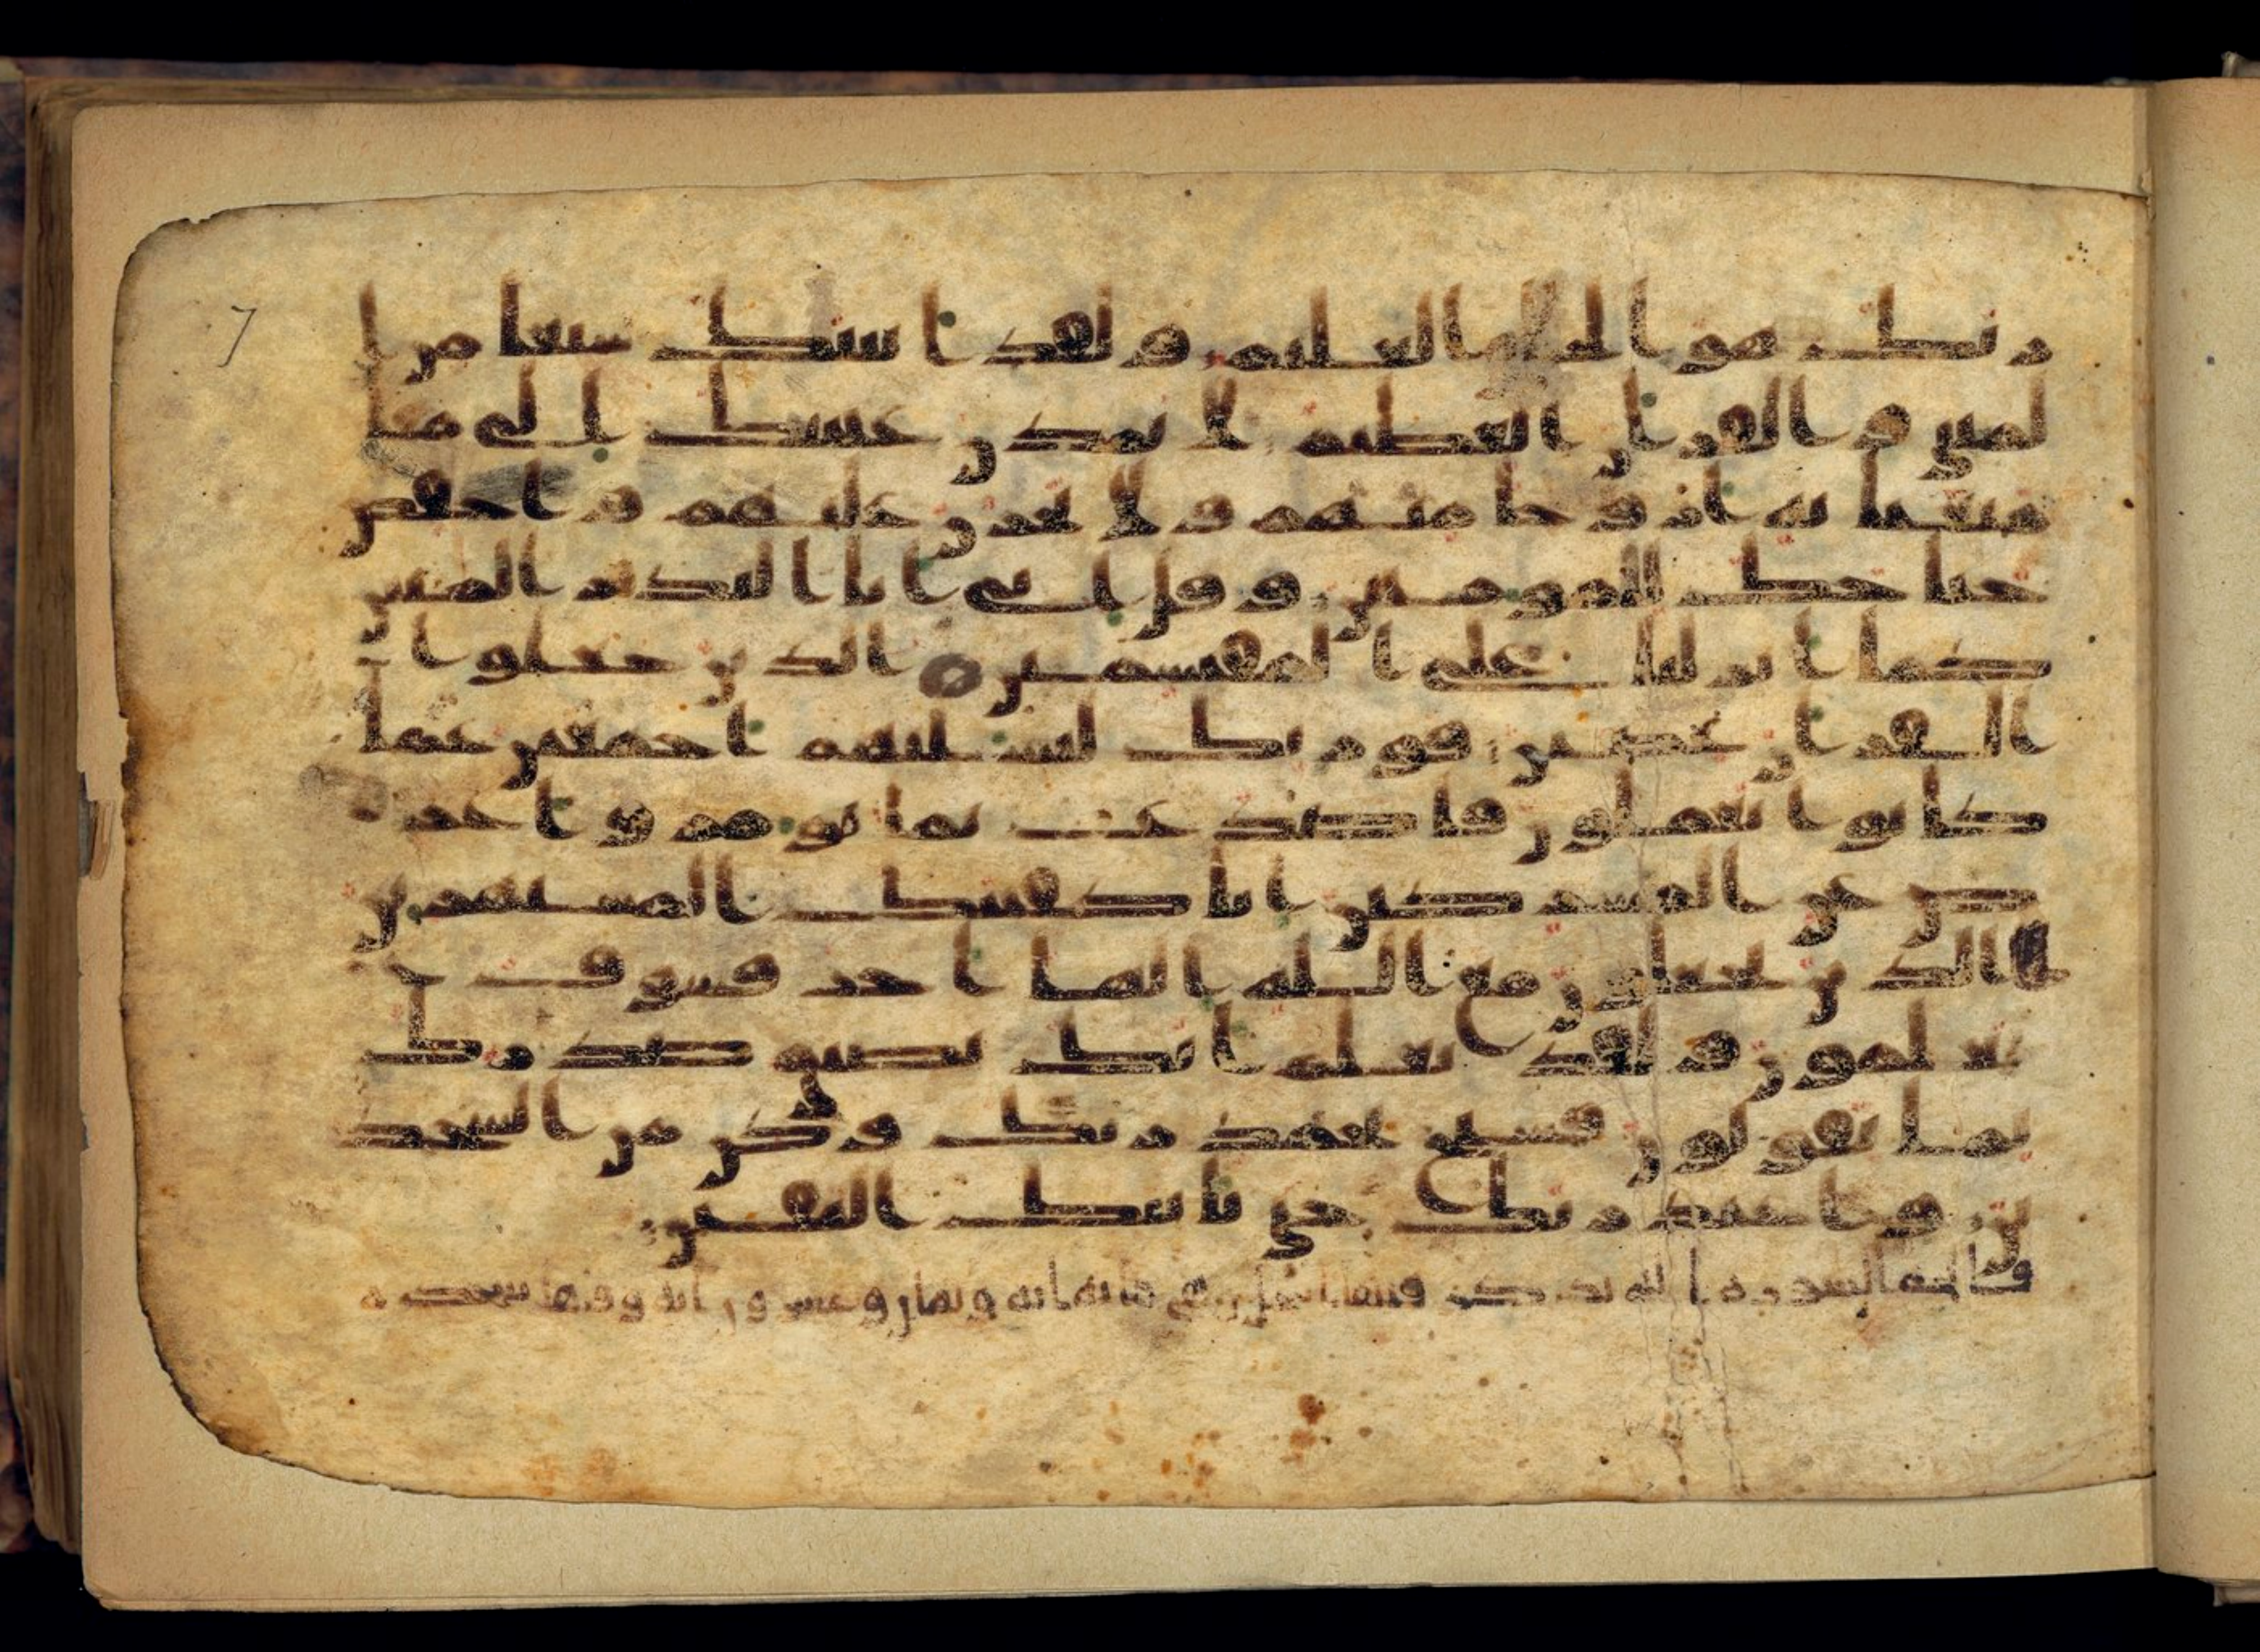 7
ربك هو الخلق العليم ولقد اتينك سبعا من ا
لمثني والقران العظيم لا تمدن عينيك الى ما
متعنا به ازوجا منهم ولا تحزن عليهم واخفض
جناحك للمومنين وقل اني انا النذير المبين
كما انزلنا على المقتسمين الذين جعلوا
القران عضين فوربك لنسلنهم اجمعين عما
كانوا يعملون فاصدع بما تومر واعر
ض عن المشركين انا كفينك المستهزين
الذين يجعلون مع الله الها اخر فسوف يـ
علمون ولقد نعلم انك يضيق صدرك
بما يقولون فسبح بحمد ربك وكن من السجد
ين واعبد ربك حتى ياتيك اليقين
فاتحه السوره التي يذكر فيها النحل وهي مايه ايه وثمان وعشرون ايه وفيها سجده